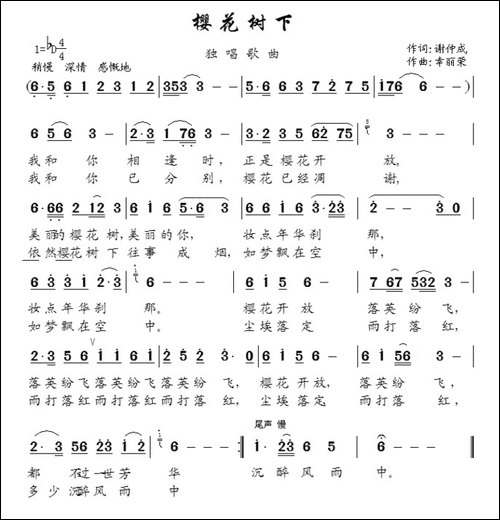 樱花树下
1=♭D 4/4
独唱歌曲
作词:谢仲成
稍慢 深情 感慨地
作曲:幸丽荣
(6·5 6 1 2 3 1 2 | 3 5 3 3 - - | 5·6 6 3 7 2 7 5 | 1 7 6 6 - -)
6 6 5 3 - | 2·3 1 7 6 - | 2·3 3 5 6 2 7 5 | 3 - - -
我和你相逢时,正是樱花开放,
我和你已分别,樱花已经凋谢,
6·6 6 6 2 1 2 3 | 6 1 6 5·6 3 | 6 6 1 6 3·2 3 | 2 - - 3 0
美丽的樱花树,美丽的你,妆点年华刹那,
依然樱花树下往事成烟,如梦飘在空中,
6 3 3 1 2·3 | 6 - - - | 6 1 2 3 - | 7 6 7 5 3 2 3 -
妆点年华刹那。樱花开放落英纷飞,
如梦飘在空中。尘埃落定雨打落红,
2·3 5 6 1 1 6 1 | 1 6 1 2·3 - | 0 2·0 5 3 - | 6 1 5 6 3 -
落英纷飞落英纷飞落英纷飞,樱花开放,落英纷飞,
雨打落红雨打落红雨打落红,尘埃落定雨打落红,
尾声 慢
2·3 5 6 2 3 1 2 | 6 - - - :| 1·2 3 6 5 | 6 - - -
都不过一世芳华沉醉风雨中。
多少沉醉风雨中